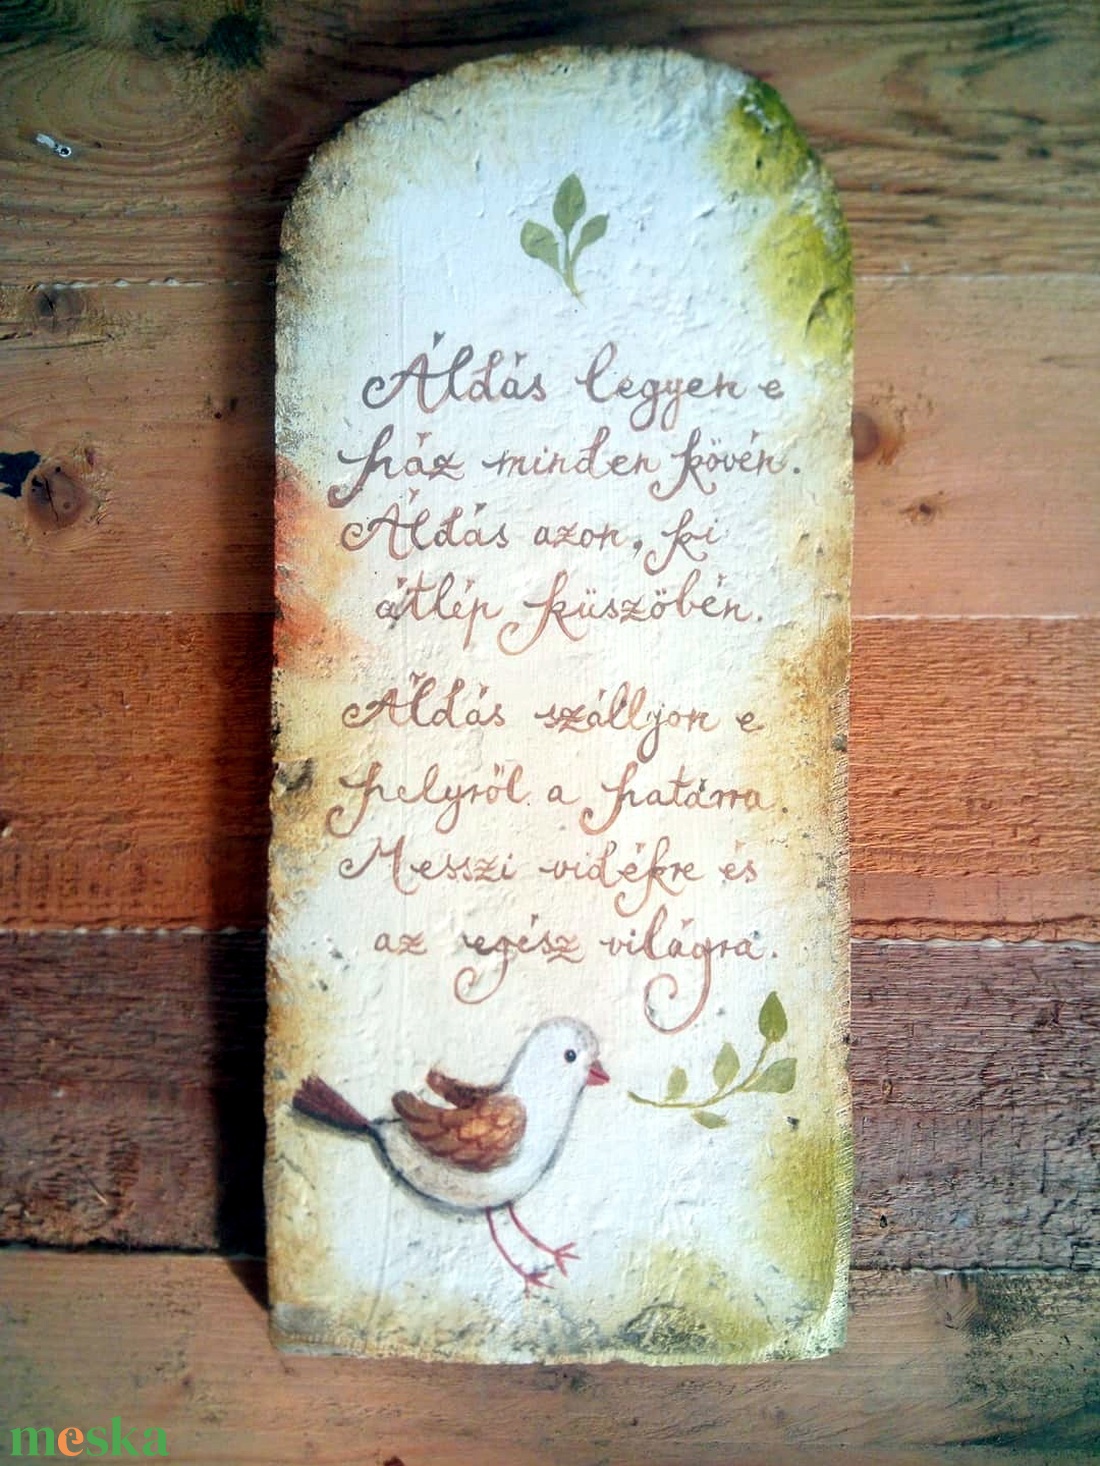 Áldás legyen e
ház minden kövén.
Áldás azon, ki
átlép küszöbén.
Áldás szálljon e
helyről a határra.
Messzi vidékre és
az egész világra.
meska